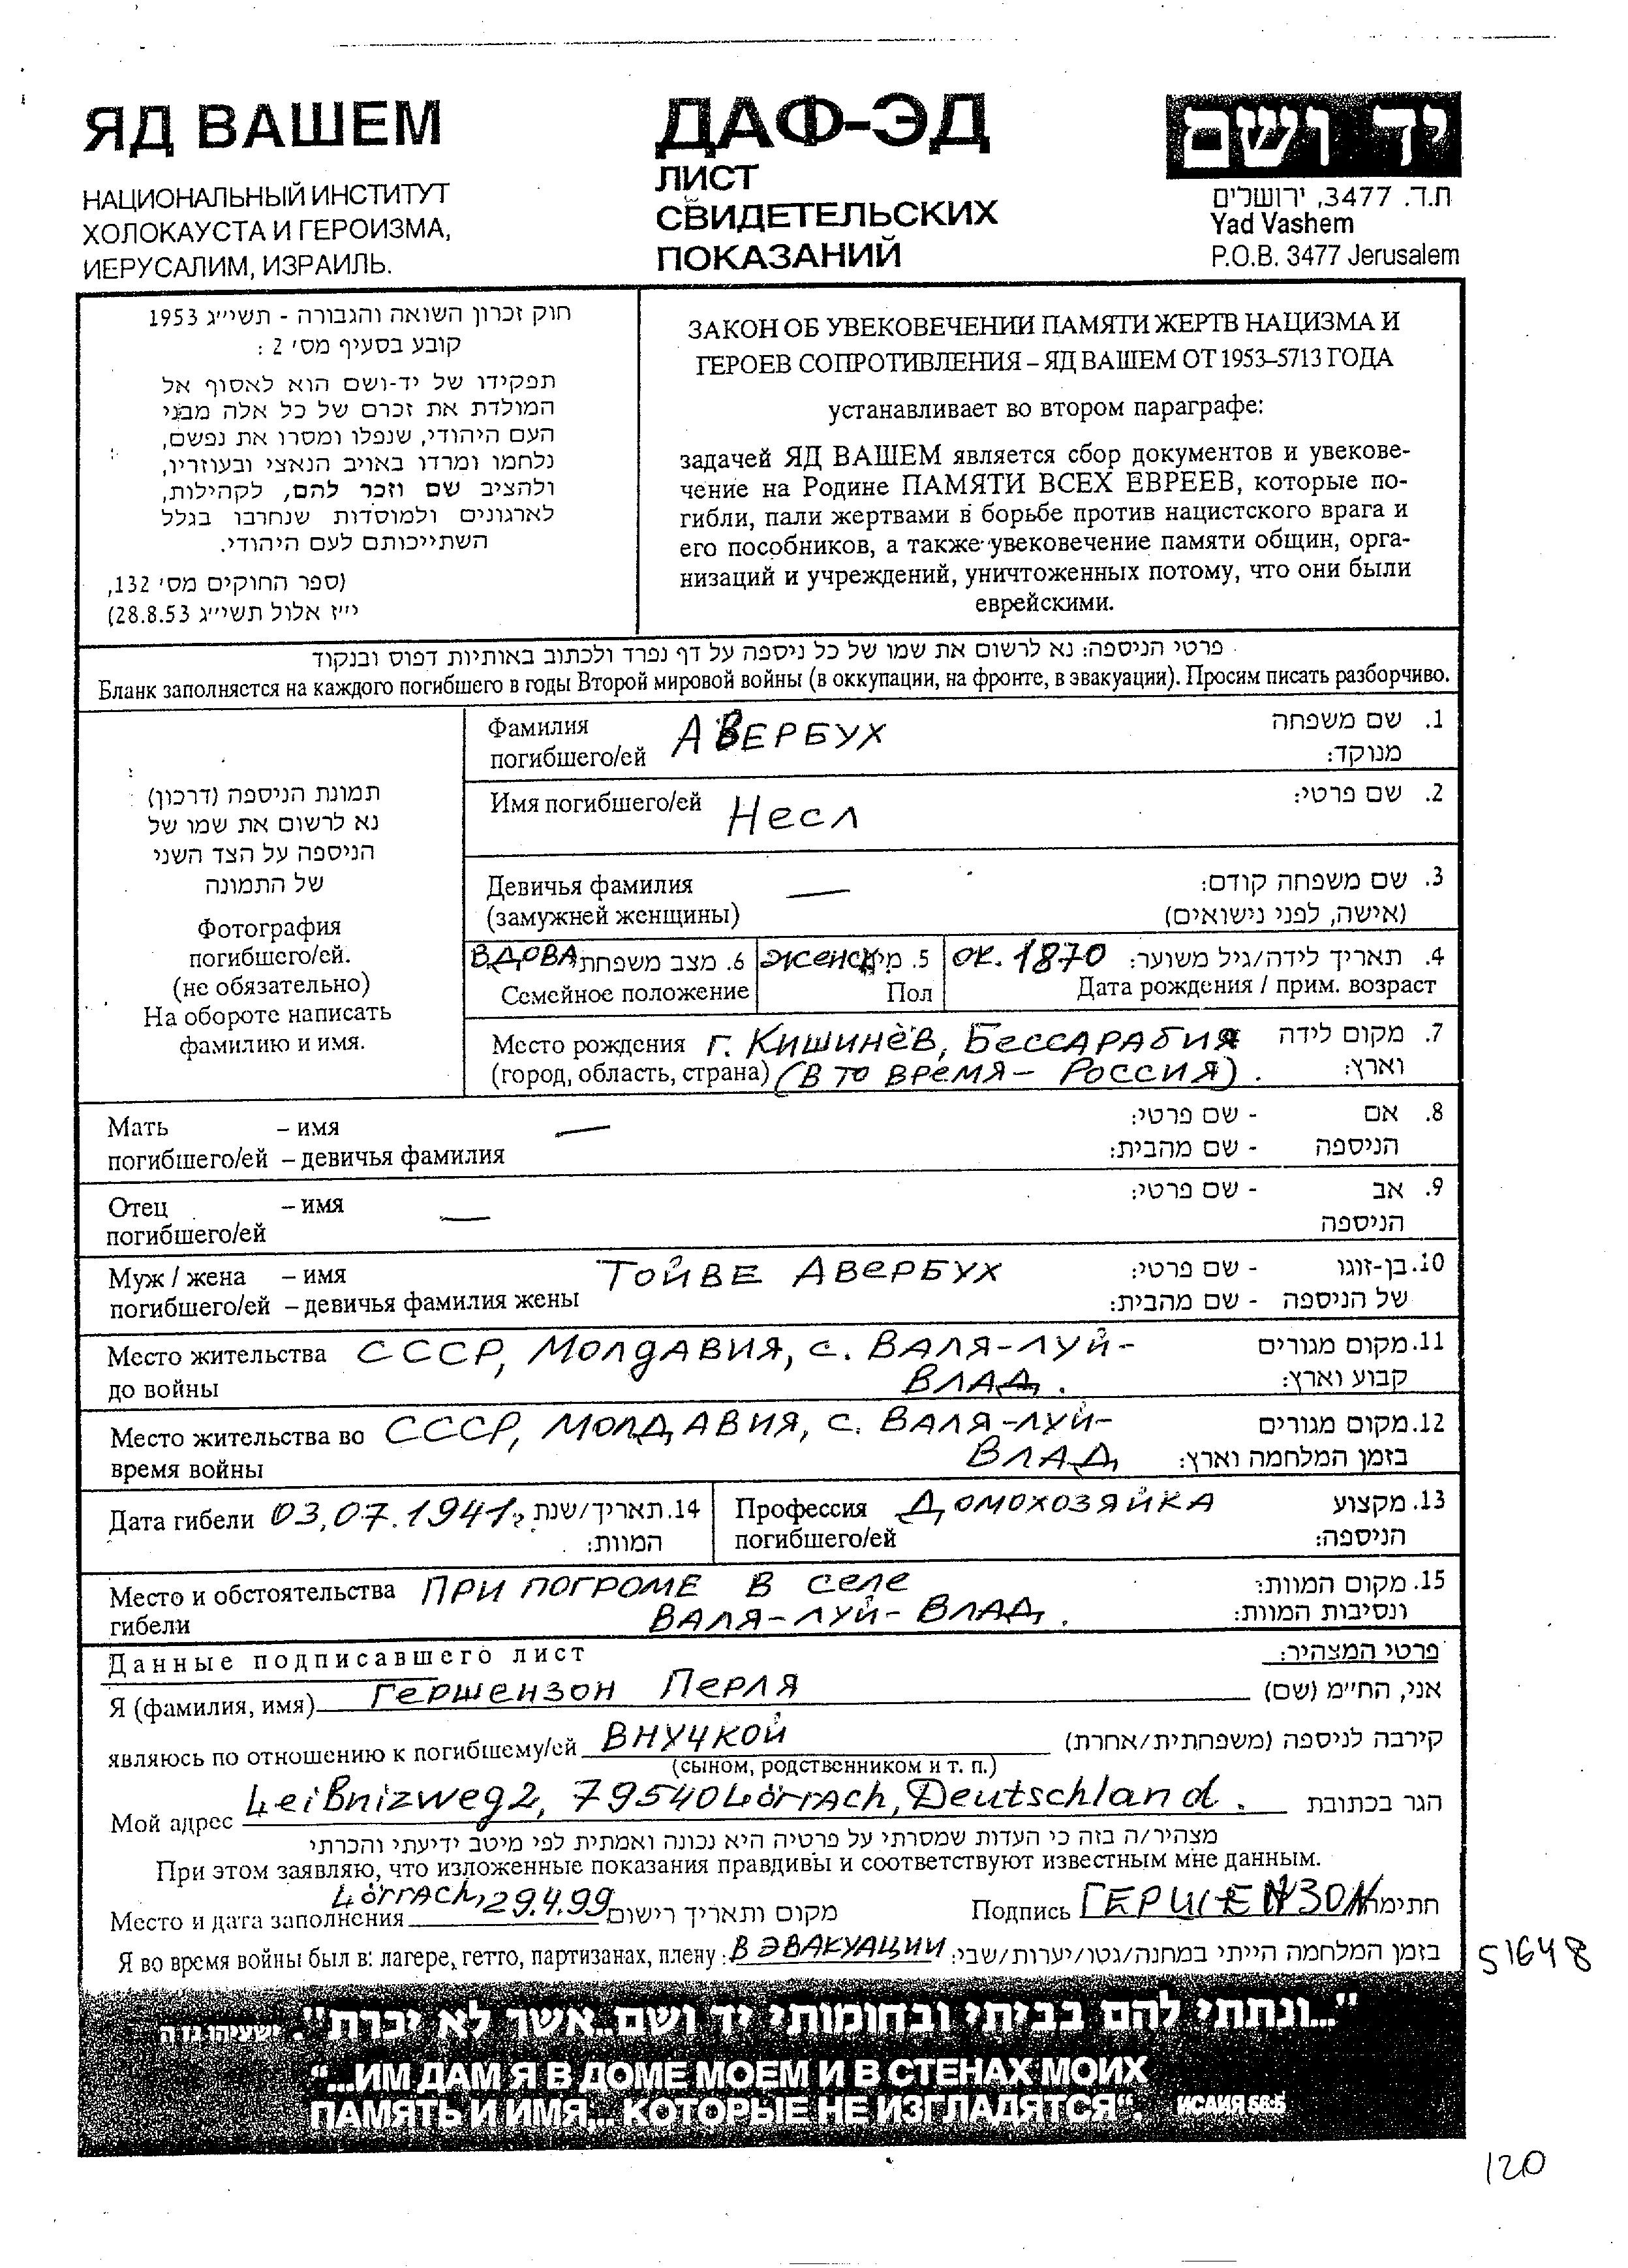 ЯД ВАШЕМ
НАЦИОНАЛЬНЫЙ ИНСТИТУТ
ХОЛОКАУСТА И ГЕРОИЗМА,
ИЕРУСАЛИМ, ИЗРАИЛЬ.
ДАФ-ЭД
ЛИСТ
СВИДЕТЕЛЬСКИХ
ПОКАЗАНИЙ
יד ושם
ת.ד. 3477, ירושלים
Yad Vashem
P.O.B. 3477 Jerusalem
חוק זכרון השואה והגבורה - תשי״ג 1953
קובע בסעיף מס׳ 2 :
תפקידו של יד-ושם הוא לאסוף אל
המולדת את זכרם של כל אלה מבני
העם היהודי, שנפלו ומסרו את נפשם,
נלחמו ומרדו באויב הנאצי ובעוזריו,
ולהציב שם וזכר להם, לקהילות,
לארגונים ולמוסדות שנחרבו בגלל
השתייכותם לעם היהודי.
(ספר החוקים מס׳ 132,
י״ז אלול תשי״ג 28.8.53)
ЗАКОН ОБ УВЕКОВЕЧЕНИИ ПАМЯТИ ЖЕРТВ НАЦИЗМА И
ГЕРОЕВ СОПРОТИВЛЕНИЯ – ЯД ВАШЕМ ОТ 1953–5713 ГОДА
устанавливает во втором параграфе:
задачей ЯД ВАШЕМ является сбор документов и увекове-
чение на Родине ПАМЯТИ ВСЕХ ЕВРЕЕВ, которые по-
гибли, пали жертвами в борьбе против нацистского врага и
его пособников, а также увековечение памяти общин, орга-
низаций и учреждений, уничтоженных потому, что они были
еврейскими.
פרטי הניספה: נא לרשום את שמו של כל ניספה על דף נפרד ולכתוב באותיות דפוס ובנקוד
Бланк заполняется на каждого погибшего в годы Второй мировой войны (в оккупации, на фронте, в эвакуации). Просим писать разборчиво.
תמונת הניספה (דרכון)
נא לרשום את שמו של
הניספה על הצד השני
של התמונה
Фотография
погибшего/ей.
(не обязательно)
На обороте написать
фамилию и имя.
Фамилия АВЕРБУХ 1. שם משפחה
погибшего/ей מנוקד:
Имя погибшего/ей Несл 2. שם פרטי:
Девичья фамилия — 3. שם משפחה קודם:
(замужней женщины) (אישה, לפני נישואים)
ВДОВА 6. מצב משפחתי женск 5. מין ок. 1870 4. תאריך לידה/גיל משוער:
Семейное положение Пол Дата рождения / прим. возраст
Место рождения г. Кишинёв, Бессарабия 7. מקום לידה
(город, область, страна) (в то время – Россия). וארץ:
Мать – имя — 8. אם - שם פרטי:
погибшего/ей – девичья фамилия הניספה - שם מהבית:
Отец – имя — 9. אב - שם פרטי:
погибшего/ей הניספה
Муж / жена – имя Тойве Авербух 10. בן-זוגו - שם פרטי:
погибшего/ей – девичья фамилия жены של הניספה - שם מהבית:
Место жительства СССР, Молдавия, с. Валя-Луй- 11. מקום מגורים
до войны Влад. קבוע וארץ:
Место жительства во СССР, Молдавия, с. Валя-Луй- 12. מקום מגורים
время войны Влад בזמן המלחמה וארץ:
Дата гибели 03.07.1941г. 14. תאריך/שנת Профессия Домохозяйка 13. מקצוע
המוות: погибшего/ей הניספה:
Место и обстоятельства при погроме в селе 15. מקום המוות:
гибели Валя-Луй-Влад. ונסיבות המוות:
Данные подписавшего лист פרטי המצהיר:
Я (фамилия, имя) Гершензон Перля אני, החי״מ (שם)
являюсь по отношению к погибшему/ей внучкой קירבה לניספה (משפחתית/אחרת)
(сыном, родственником и т. п.)
Мой адрес Leibnizweg 2, 79540 Lörrach, Deutschland. הגר בכתובת
מצהיר/ה בזה כי העדות שמסרתי על פרטיה היא נכונה ואמתית לפי מיטב ידיעתי והכרתי
При этом заявляю, что изложенные показания правдивы и соответствуют известным мне данным.
Место и дата заполнения Lörrach, 29.4.99 מקום ותאריך רישום Подпись ГЕРШЕНЗОН חתימה
Я во время войны был в: лагере, гетто, партизанах, плену: В ЭВАКУАЦИИ בזמן המלחמה הייתי במחנה/גטו/יערות/שבי:
51648
"...ונתתי להם בביתי ובחומותי יד ושם..אשר לא יכרת". ישעיהו נו ה
“...ИМ ДАМ Я В ДОМЕ МОЕМ И В СТЕНАХ МОИХ
ПАМЯТЬ И ИМЯ... КОТОРЫЕ НЕ ИЗГЛАДЯТСЯ”. ИСАИЯ 56:5
120